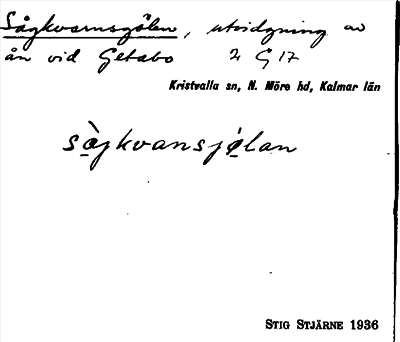 Sågkvarnsgölen, utvidgning av
ån vid Getabo 2 G 17
Kristvalla sn, N. Möre hd, Kalmar län
sågkvansjölan
STIG STJÄRNE 1936